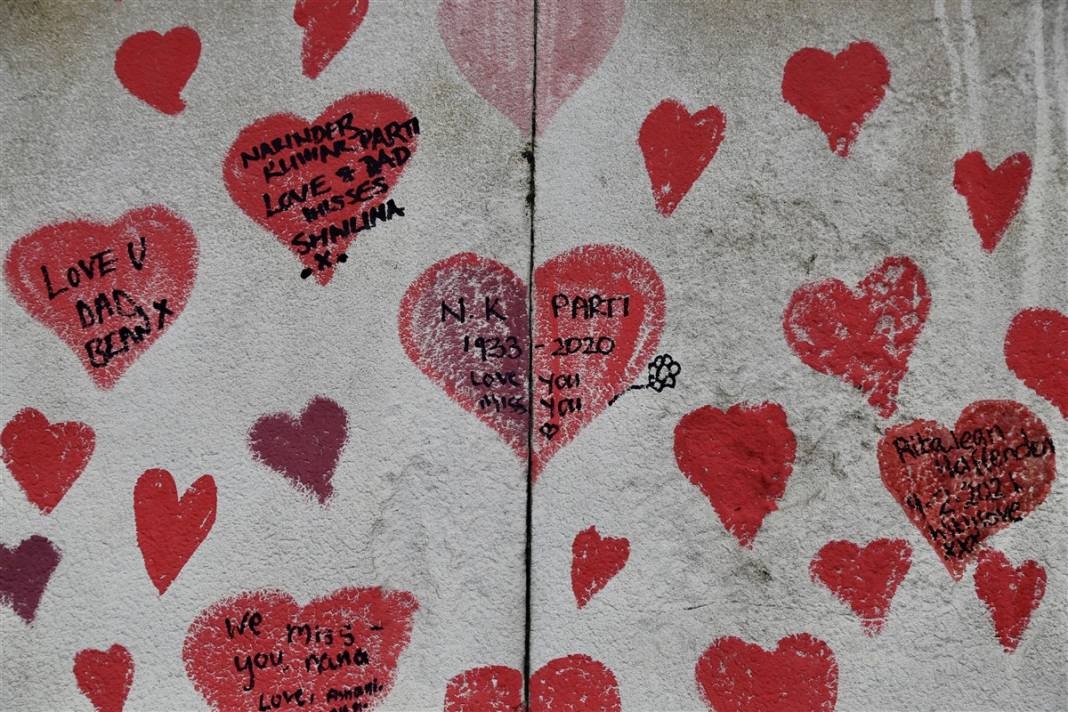 NARINDER
KUMAR PARTI
LOVE & DAD
MISSES
SHALINA
X
LOVE U
DAD
BEAN X
N. K PARTI
1933 - 2020
Love you
miss you
Rita Jean
9.2.2021
xxx
We miss -
you nana
Love,